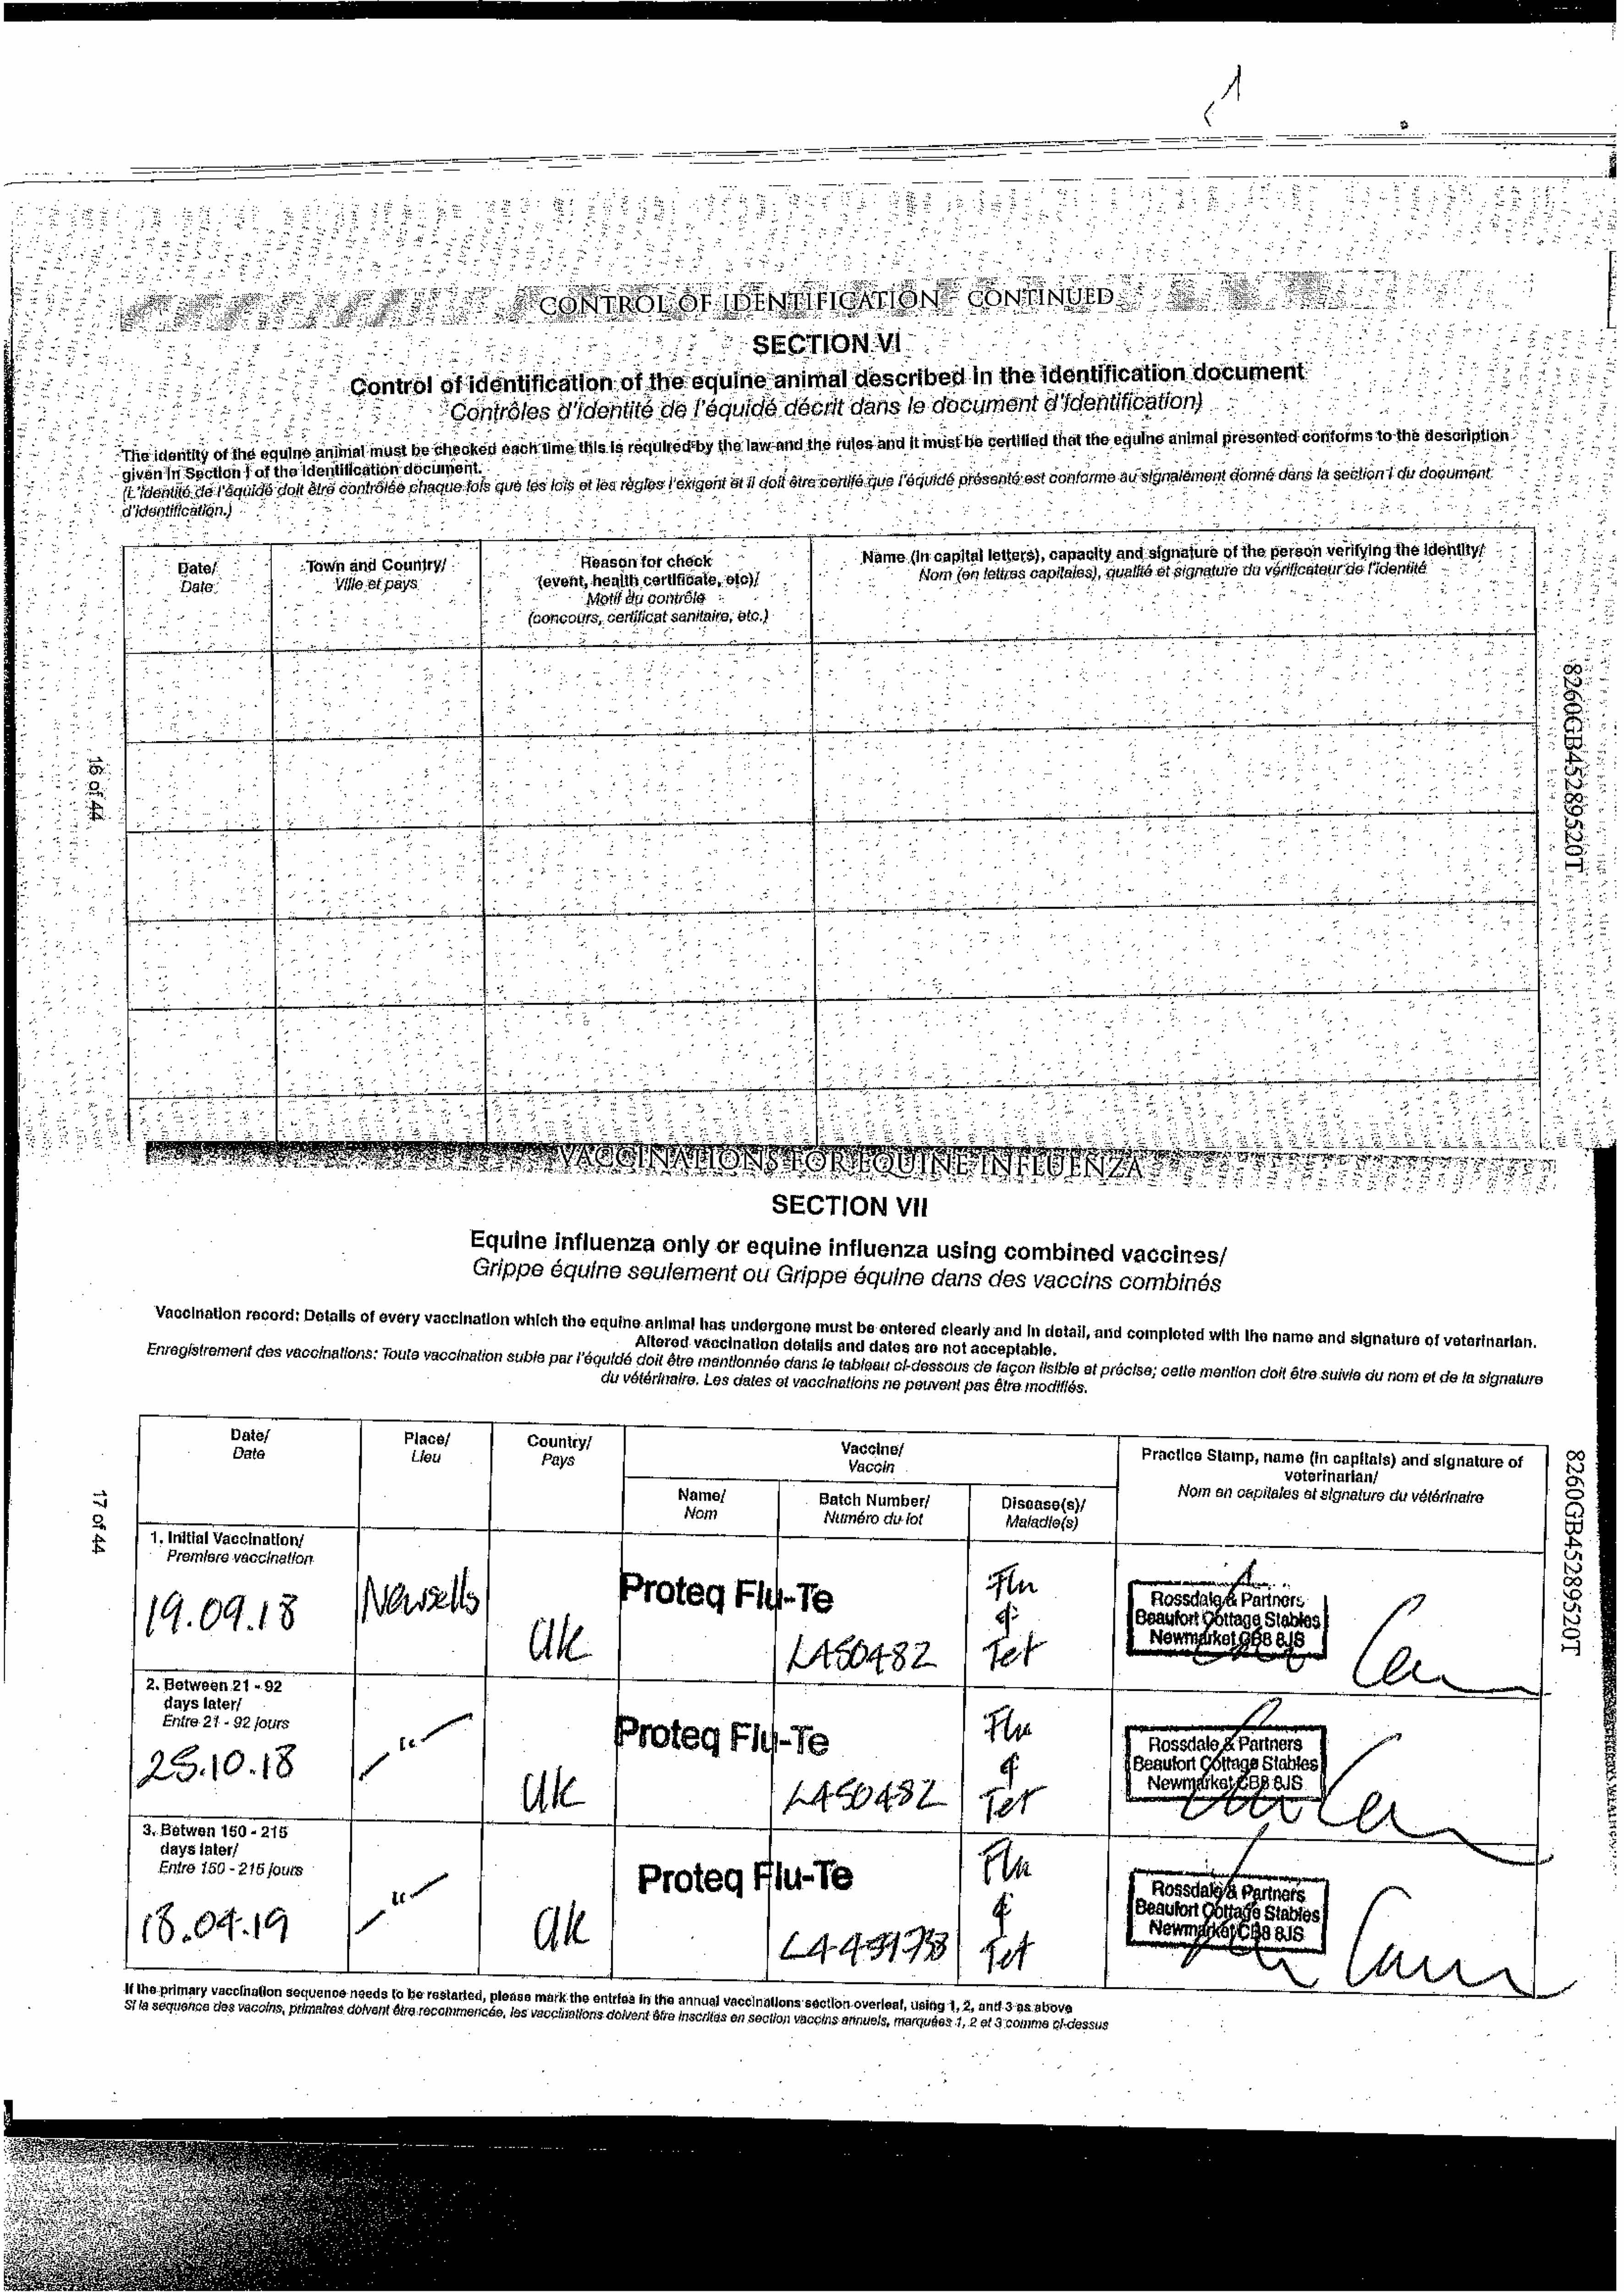 CONTROL OF IDENTIFICATION - CONTINUED
SECTION VI
Control of identification of the equine animal described in the identification document
Contrôles d'identité de l'équidé décrit dans le document d'identification)
The identity of the equine animal must be checked each time this is required by the law and the rules and it must be certified that the equine animal presented conforms to the description
given in Section I of the Identification document.
(L'identité de l'équidé doit être contrôlée chaque fois que les lois et les règles l'exigent et il doit être certifé que l'équidé présenté est conforme au signalément donné dans la section I du document
d'identification.)
Date/
Date
Town and Country/
Ville et pays
Reason for check
(event, health certificate, etc)/
Motif du contrôle
(concours, certificat sanitaire, etc.)
Name (in capital letters), capacity and signature of the person verifying the identity/
Nom (en lettres capitales), qualité et signature du vérificateur de l'identité
16 of 44
8260GB45289520T
VACCINATIONS FOR EQUINE INFLUENZA
SECTION VII
Equine influenza only or equine influenza using combined vaccines/
Grippe équine seulement ou Grippe équine dans des vaccins combinés
Vaccination record: Details of every vaccination which the equine animal has undergone must be entered clearly and in detail, and completed with the name and signature of veterinarian.
Altered vaccination details and dates are not acceptable.
Enregistrement des vaccinations: Toute vaccination subie par l'équidé doit être mentionnée dans le tableau ci-dessous de façon lisible et précise; cette mention doit être suivie du nom et de la signature
du vétérinaire. Les dates et vaccinations ne peuvent pas être modifiés.
Date/
Date
Place/
Lieu
Country/
Pays
Vaccine/
Vaccin
Name/
Nom
Batch Number/
Numéro du lot
Disease(s)/
Maladie(s)
Practice Stamp, name (in capitals) and signature of
veterinarian/
Nom en capitales et signature du vétérinaire
17 of 44
8260GB45289520T
1. Initial Vaccination/
Premiere vaccination
19.09.18
Newsells
UK
Proteq Flu-Te
LA50482
Flu
&
Tet
Rossdale & Partners
Beaufort Cottage Stables
Newmarket CB8 8JS
2. Between 21 - 92
days later/
Entre 21 - 92 jours
25.10.18
—"—
UK
Proteq Flu-Te
LA50482
Flu
&
Tet
Rossdale & Partners
Beaufort Cottage Stables
Newmarket CB8 8JS
3. Betwen 150 - 215
days later/
Entre 150 - 215 jours
18.04.19
—"—
UK
Proteq Flu-Te
Flu
&
Tet
Rossdale & Partners
Beaufort Cottage Stables
Newmarket CB8 8JS
If the primary vaccination sequence needs to be restarted, please mark the entries in the annual vaccinations section overleaf, using 1, 2, and 3 as above
Si la sequence des vaccins, primaires doivent être recommencée, les vaccinations doivent être inscrites en section vaccins annuels, marquées 1, 2 et 3 comme ci-dessus